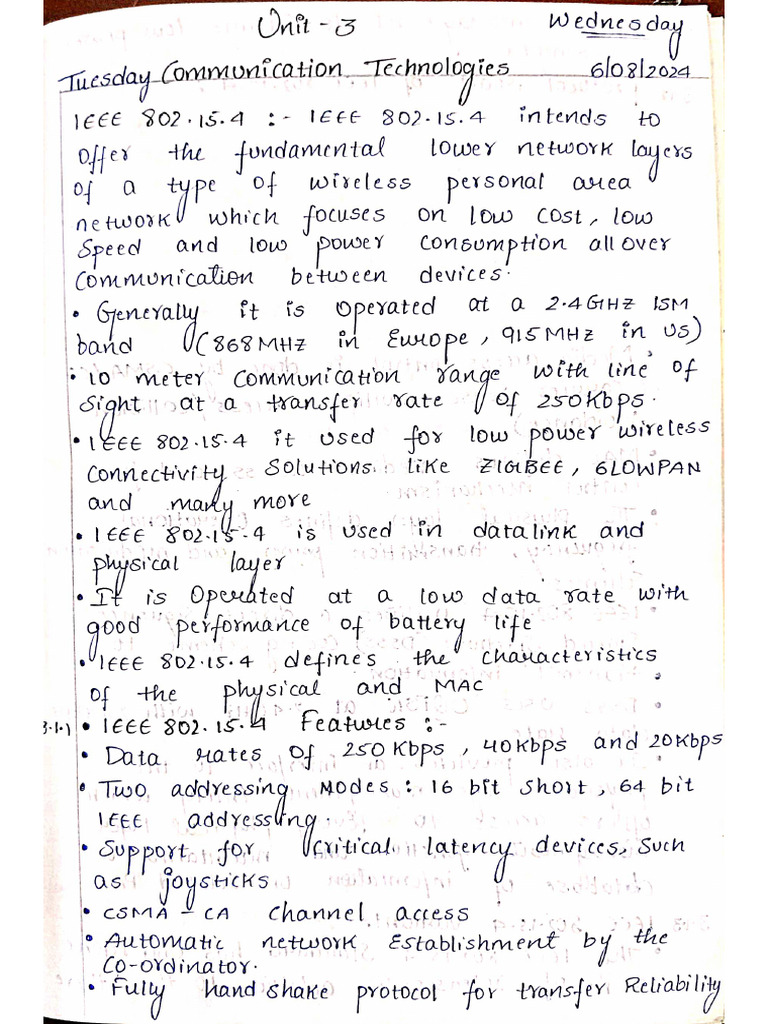 Unit - 3 Wednesday
Tuesday Communication Technologies 6/08/2024
IEEE 802.15.4 :- IEEE 802.15.4 intends to
offer the fundamental lower network layers
of a type of wireless personal area
network which focuses on low cost, low
speed and low power consumption all over
communication between devices.
• Generally it is operated at a 2.4GHZ ISM
band (868MHZ in Europe, 915MHZ in US)
• 10 meter communication range with line of
sight at a transfer rate of 250Kbps.
• IEEE 802.15.4 it used for low power wireless
connectivity solutions like ZIGBEE, 6LOWPAN
and many more
• IEEE 802.15.4 is used in datalink and
physical layer
• It is operated at a low data rate with
good performance of battery life
• IEEE 802.15.4 defines the characteristics
of the physical and MAC
3.1.1) • IEEE 802.15.4 Features :-
• Data rates of 250Kbps, 40Kbps and 20Kbps
• Two addressing Modes : 16 bit short, 64 bit
IEEE addressing.
• Support for critical latency devices, such
as joysticks
• CSMA - CA channel access
• Automatic network Establishment by the
co-ordinator.
• Fully hand shake protocol for transfer Reliability